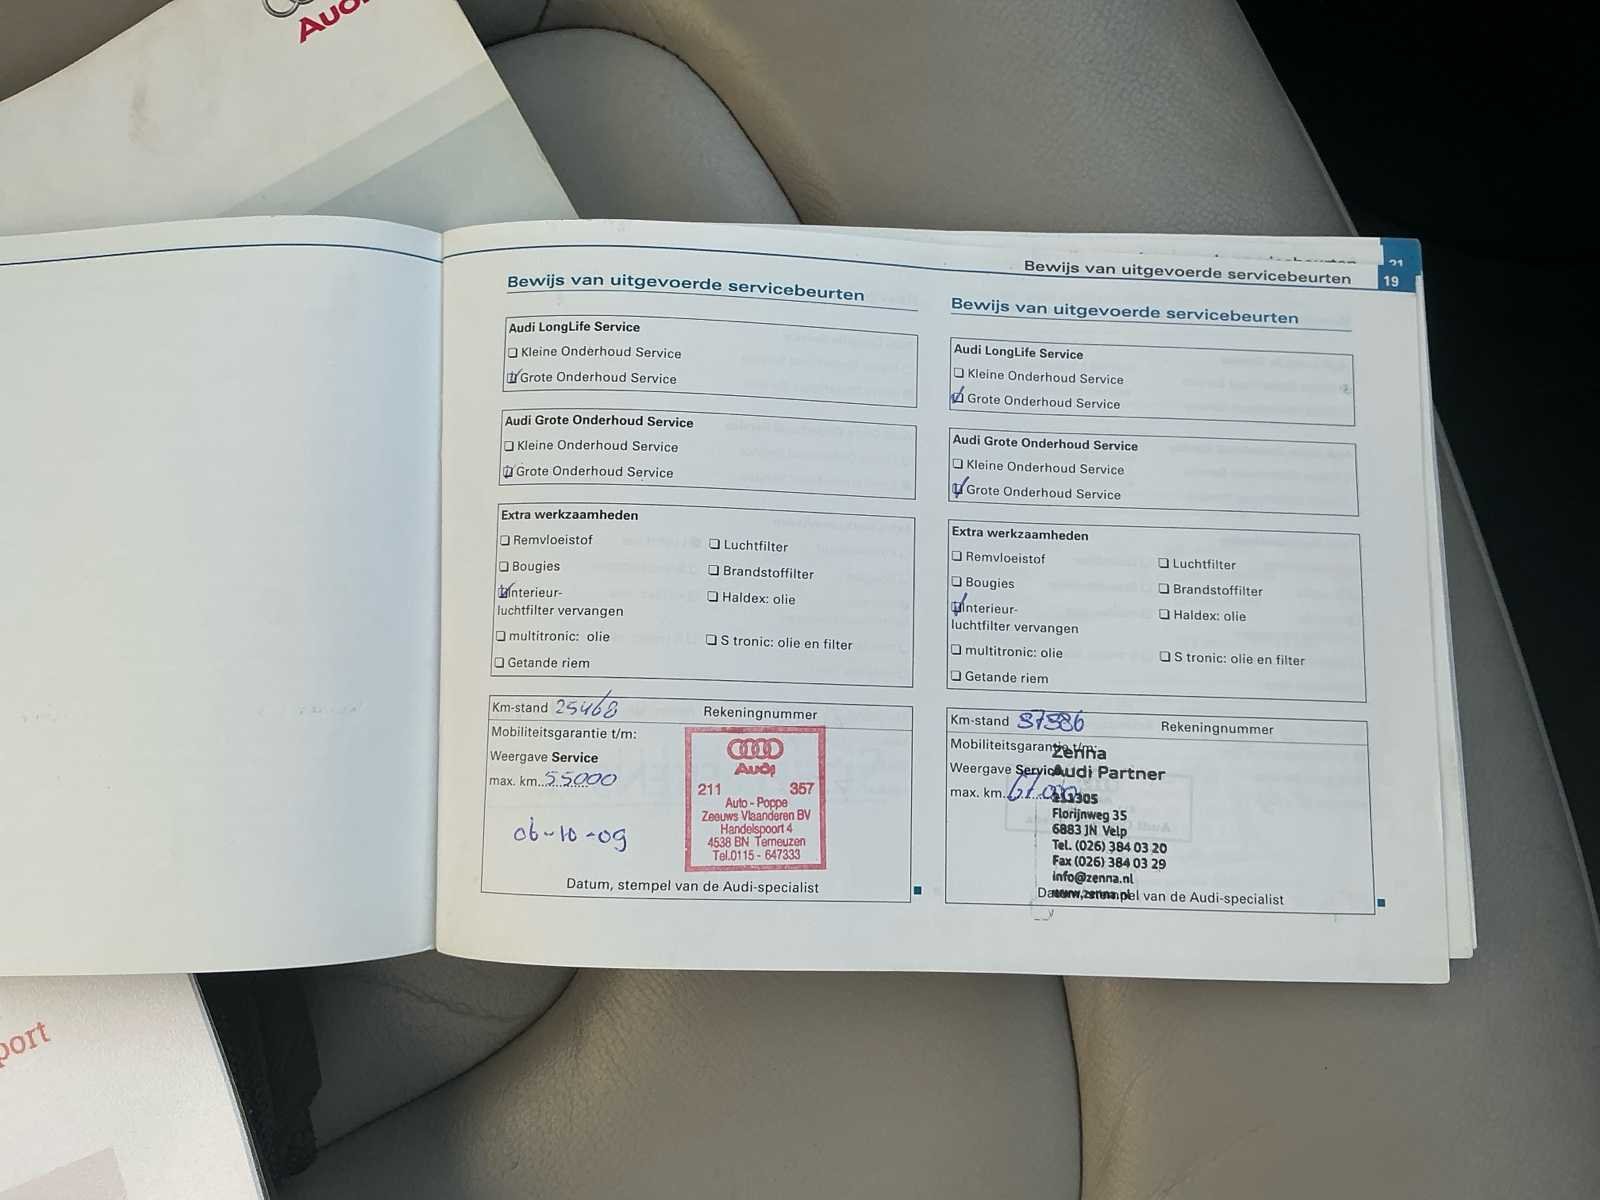 Audi
Bewijs van uitgevoerde servicebeurten 19
21
Bewijs van uitgevoerde servicebeurten
Audi LongLife Service
Kleine Onderhoud Service
Grote Onderhoud Service
Audi Grote Onderhoud Service
Kleine Onderhoud Service
Grote Onderhoud Service
Extra werkzaamheden
Remvloeistof
Luchtfilter
Bougies
Brandstoffilter
Interieur-
luchtfilter vervangen
Haldex: olie
multitronic: olie
S tronic: olie en filter
Getande riem
Km-stand 25468
Rekeningnummer
Mobiliteitsgarantie t/m:
Weergave Service
max. km. 55000
06-10-09
Audi
211 357
Auto - Poppe
Zeeuws Vlaanderen BV
Handelspoort 4
4538 BN Terneuzen
Tel.0115 - 647333
Datum, stempel van de Audi-specialist
Bewijs van uitgevoerde servicebeurten
Audi LongLife Service
Kleine Onderhoud Service
Grote Onderhoud Service
Audi Grote Onderhoud Service
Kleine Onderhoud Service
Grote Onderhoud Service
Extra werkzaamheden
Remvloeistof
Luchtfilter
Bougies
Brandstoffilter
Interieur-
luchtfilter vervangen
Haldex: olie
multitronic: olie
S tronic: olie en filter
Getande riem
Km-stand
Rekeningnummer
Mobiliteitsgarantie t/m:
Weergave Service
max. km.
Zenna
Audi Partner
Florijnweg 35
6883 JN Velp
Tel. (026) 384 03 20
Fax (026) 384 03 29
info@zenna.nl
www.zenna.nl
Datum, stempel van de Audi-specialist
port